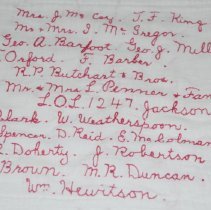 Mrs. J. Mc Coy. J. F. King
Mr & Mrs. J. Mc Gregor.
Geo. A. Barfoot. Geo. J. Mill
Orford. F. Barber.
R. P. Butchart & Bros.
Mr. & Mrs L. Penner & Fam
L.O.L. 1247. Jackson
Clark. W. Weatherspoon.
Spencer. D. Reid. E. McColman
Doherty. J. Robertson
Brown. M. R. Duncan.
Wm. Hewitson.